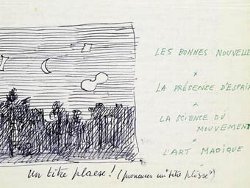 LES BONNES NOUVELLES
×
LA PRÉSENCE D'ESPRIT
×
LA SCIENCE DU
MOUVEMENT
×
L'ART MAGIQUE
Un titre plaese! (prononcer un "titi plisse")